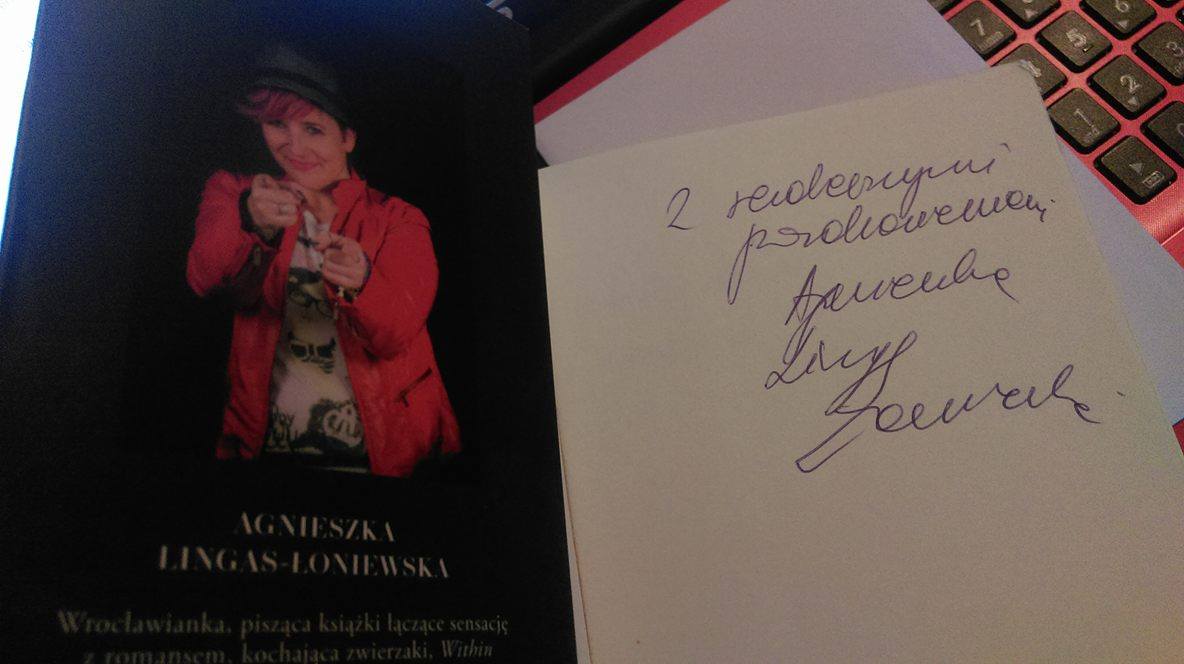 AGNIESZKA
LINGAS-ŁONIEWSKA
Wrocławianka, pisząca książki łączące sensację
z romansem, kochająca zwierzaki, Within
Z serdecznymi
pozdrowieniami
Agnieszka
Lingas
Łoniewska
7
5
6
3
2
1